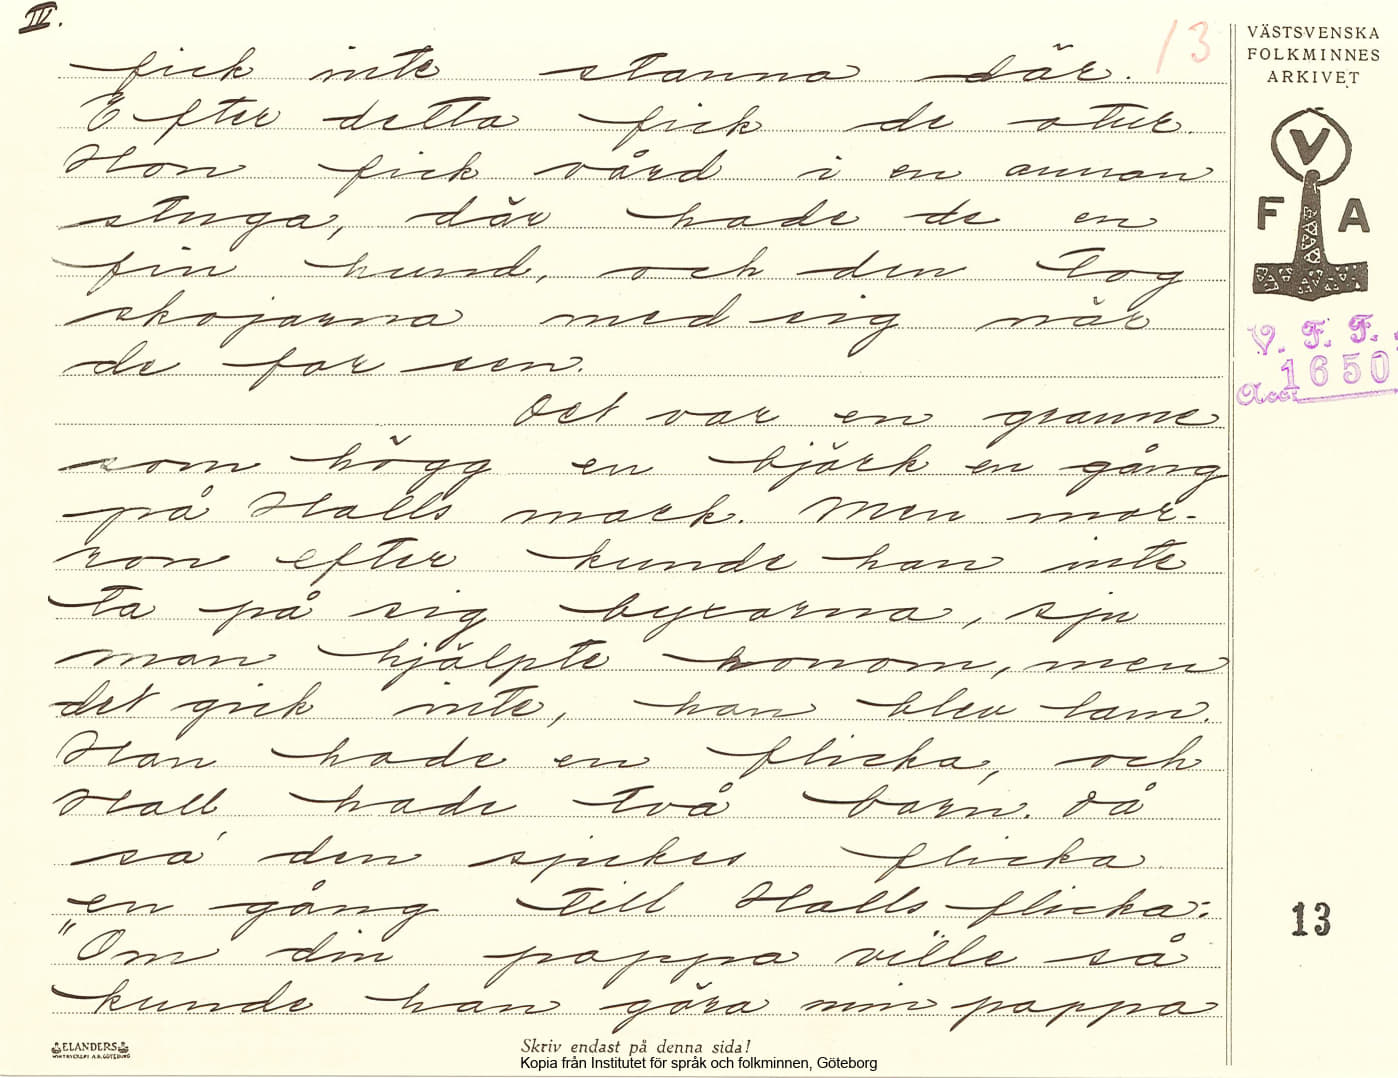 IV.
13
fick inte stanna där.
Efter detta fick de otur.
Hon fick vård i en annan
stuga, där hade de en
fin hund, och den tog
skojarna med sig när
de for sen.
Det var en granne
som högg en björk en gång
på Halls mark. Men mor-
ron efter kunde han inte
ta på sig byxorna, sju
man hjälpte honom, men
det gick inte, han blev lam.
Han hade en flicka, och
Hall hade två barn. Då
sa den sjukes flicka
en gång till Halls flicka:
"Om din pappa ville så
kunde han göra min pappa
VÄSTSVENSKA
FOLKMINNES
ARKIVET
V
F A
V. F. F.
Acc: 1650
13
ELANDERS
Skriv endast på denna sida!
Kopia från Institutet för språk och folkminnen, Göteborg